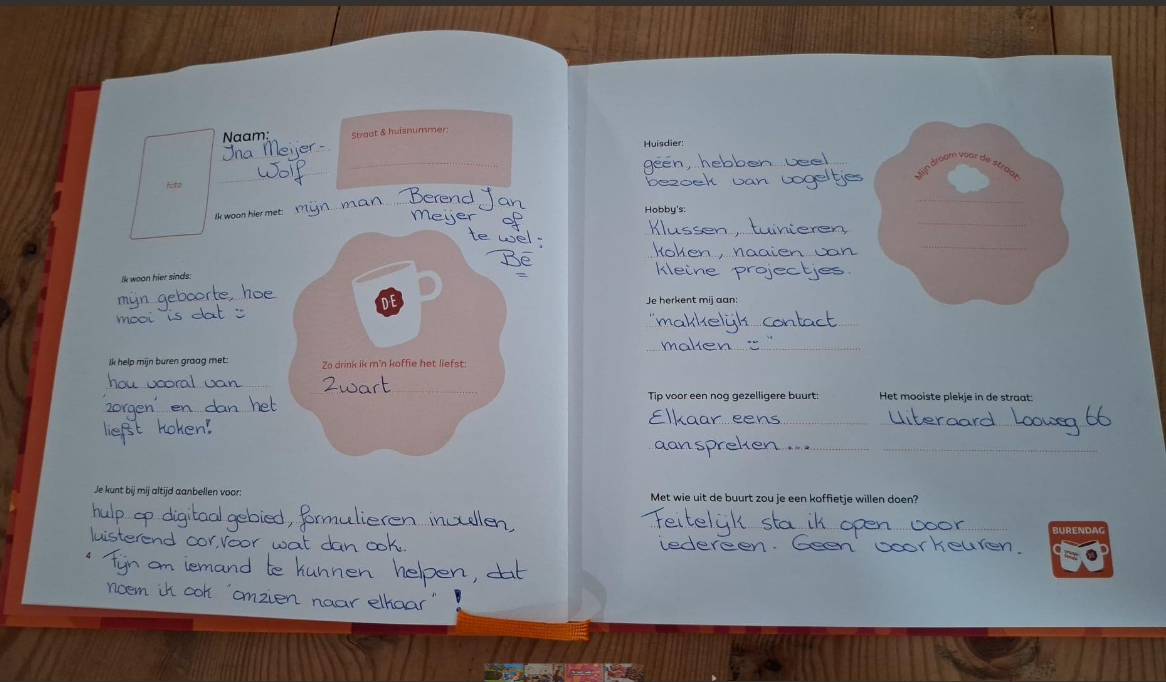 foto
Naam:
Ina Meijer-
Wolf
Straat & huisnummer:
Ik woon hier met: mijn man Berend Jan
Meijer of
te wel:
Bé
Ik woon hier sinds:
mijn geboorte, hoe
mooi is dat
DE
Ik help mijn buren graag met:
hou vooral van
'zorgen' en dan het
liefst koken!
Zo drink ik m'n koffie het liefst:
Zwart
Je kunt bij mij altijd aanbellen voor:
hulp op digitaal gebied, formulieren invullen,
luisterend oor, voor wat dan ook.
Fijn om iemand te kunnen helpen, dat
noem ik ook "omzien naar elkaar" !
4
Huisdier:
géén, hebben veel
bezoek van vogeltjes
Mijn droom voor de straat:
Hobby's:
Klussen, tuinieren,
koken, naaien van
kleine projectjes.
Je herkent mij aan:
"makkelijk contact
maken "
Tip voor een nog gezelligere buurt:
Elkaar eens
aanspreken ...
Het mooiste plekje in de straat:
Uiteraard Looweg 66
Met wie uit de buurt zou je een koffietje willen doen?
Feitelijk sta ik open voor
iedereen. Geen voorkeuren.
BURENDAG